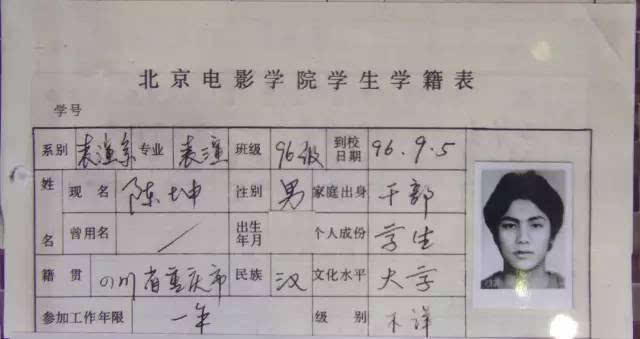 北京电影学院学生学籍表
学号
系别 表演系 专业 表演 班级 96级 到校日期 96.9.5
姓名 现名 陈坤 性别 男 家庭出身 干部
曾用名 / 出生年月 个人成份 学生
籍贯 四川省重庆市 民族 汉 文化水平 大学
参加工作年限 一年 级别 不详